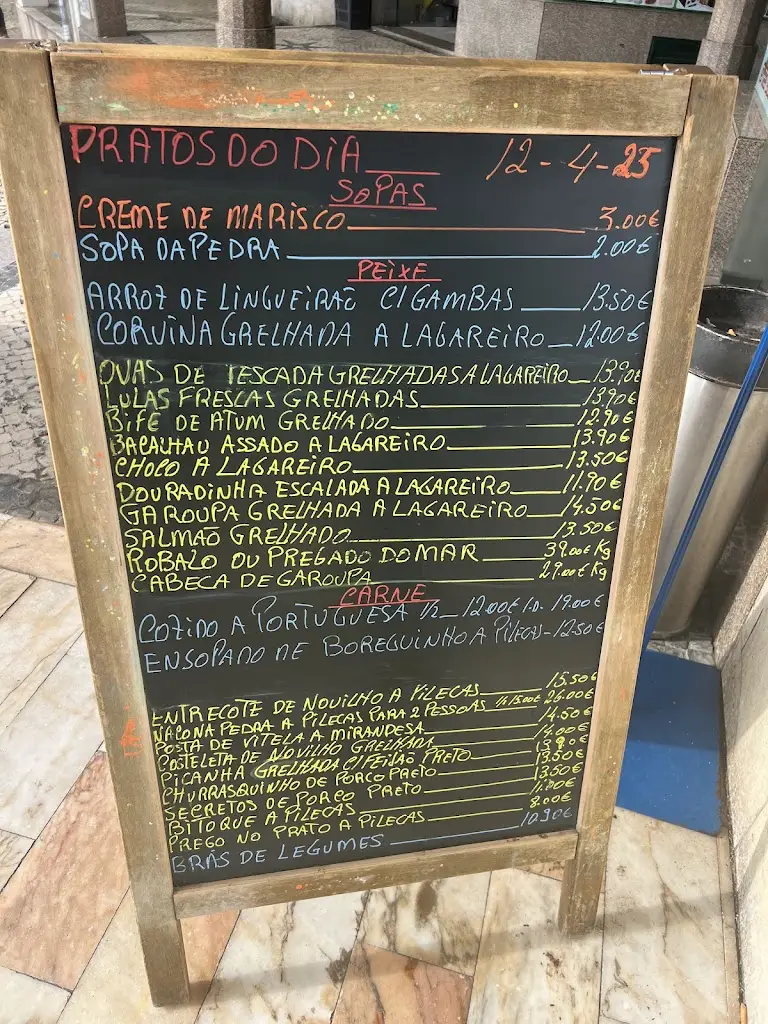 PRATOS DO DIA 12-4-25
SOPAS
CREME DE MARISCO 3.00€
SOPA DA PEDRA 2.00€
PEIXE
ARROZ DE LINGUEIRÃO C/GAMBAS 13.50€
CORVINA GRELHADA A LAGAREIRO 12.00€
OVAS DE PESCADA GRELHADAS A LAGAREIRO 13.90€
LULAS FRESCAS GRELHADAS 13.90€
BIFE DE ATUM GRELHADO 12.90€
BACALHAU ASSADO A LAGAREIRO 13.90€
CHOCO A LAGAREIRO 13.50€
DOURADINHA ESCALADA A LAGAREIRO 11.90€
GAROUPA GRELHADA A LAGAREIRO 14.50€
SALMÃO GRELHADO 13.50€
ROBALO OU PREGADO DO MAR 39.00€ Kg
CABECA DE GAROUPA 29.00€ Kg
CARNE
COZIDO A PORTUGUESA 1/2 12.00€ 1.D. 19.00€
ENSOPADO DE BOREGUINHO A PILECAS - 12.50€
ENTRECOTE DE NOVILHO A PILECAS 15.50€
NACO NA PEDRA A PILECAS PARA 2 PESSOAS 1/2 15.00€ 26.00€
POSTA DE VITELA A MIRANDESA 14.50€
COSTELETA DE NOVILHO GRELHADA 14.00€
PICANHA GRELHADA C/FEIJÃO PRETO 13.90€
CHURRASQUINHO DE PORCO PRETO 13.50€
SECRETOS DE PORCO PRETO 13.50€
BITOQUE A PILECAS 11.00€
PREGO NO PRATO A PILECAS 8.00€
BRÁS DE LEGUMES 10.90€